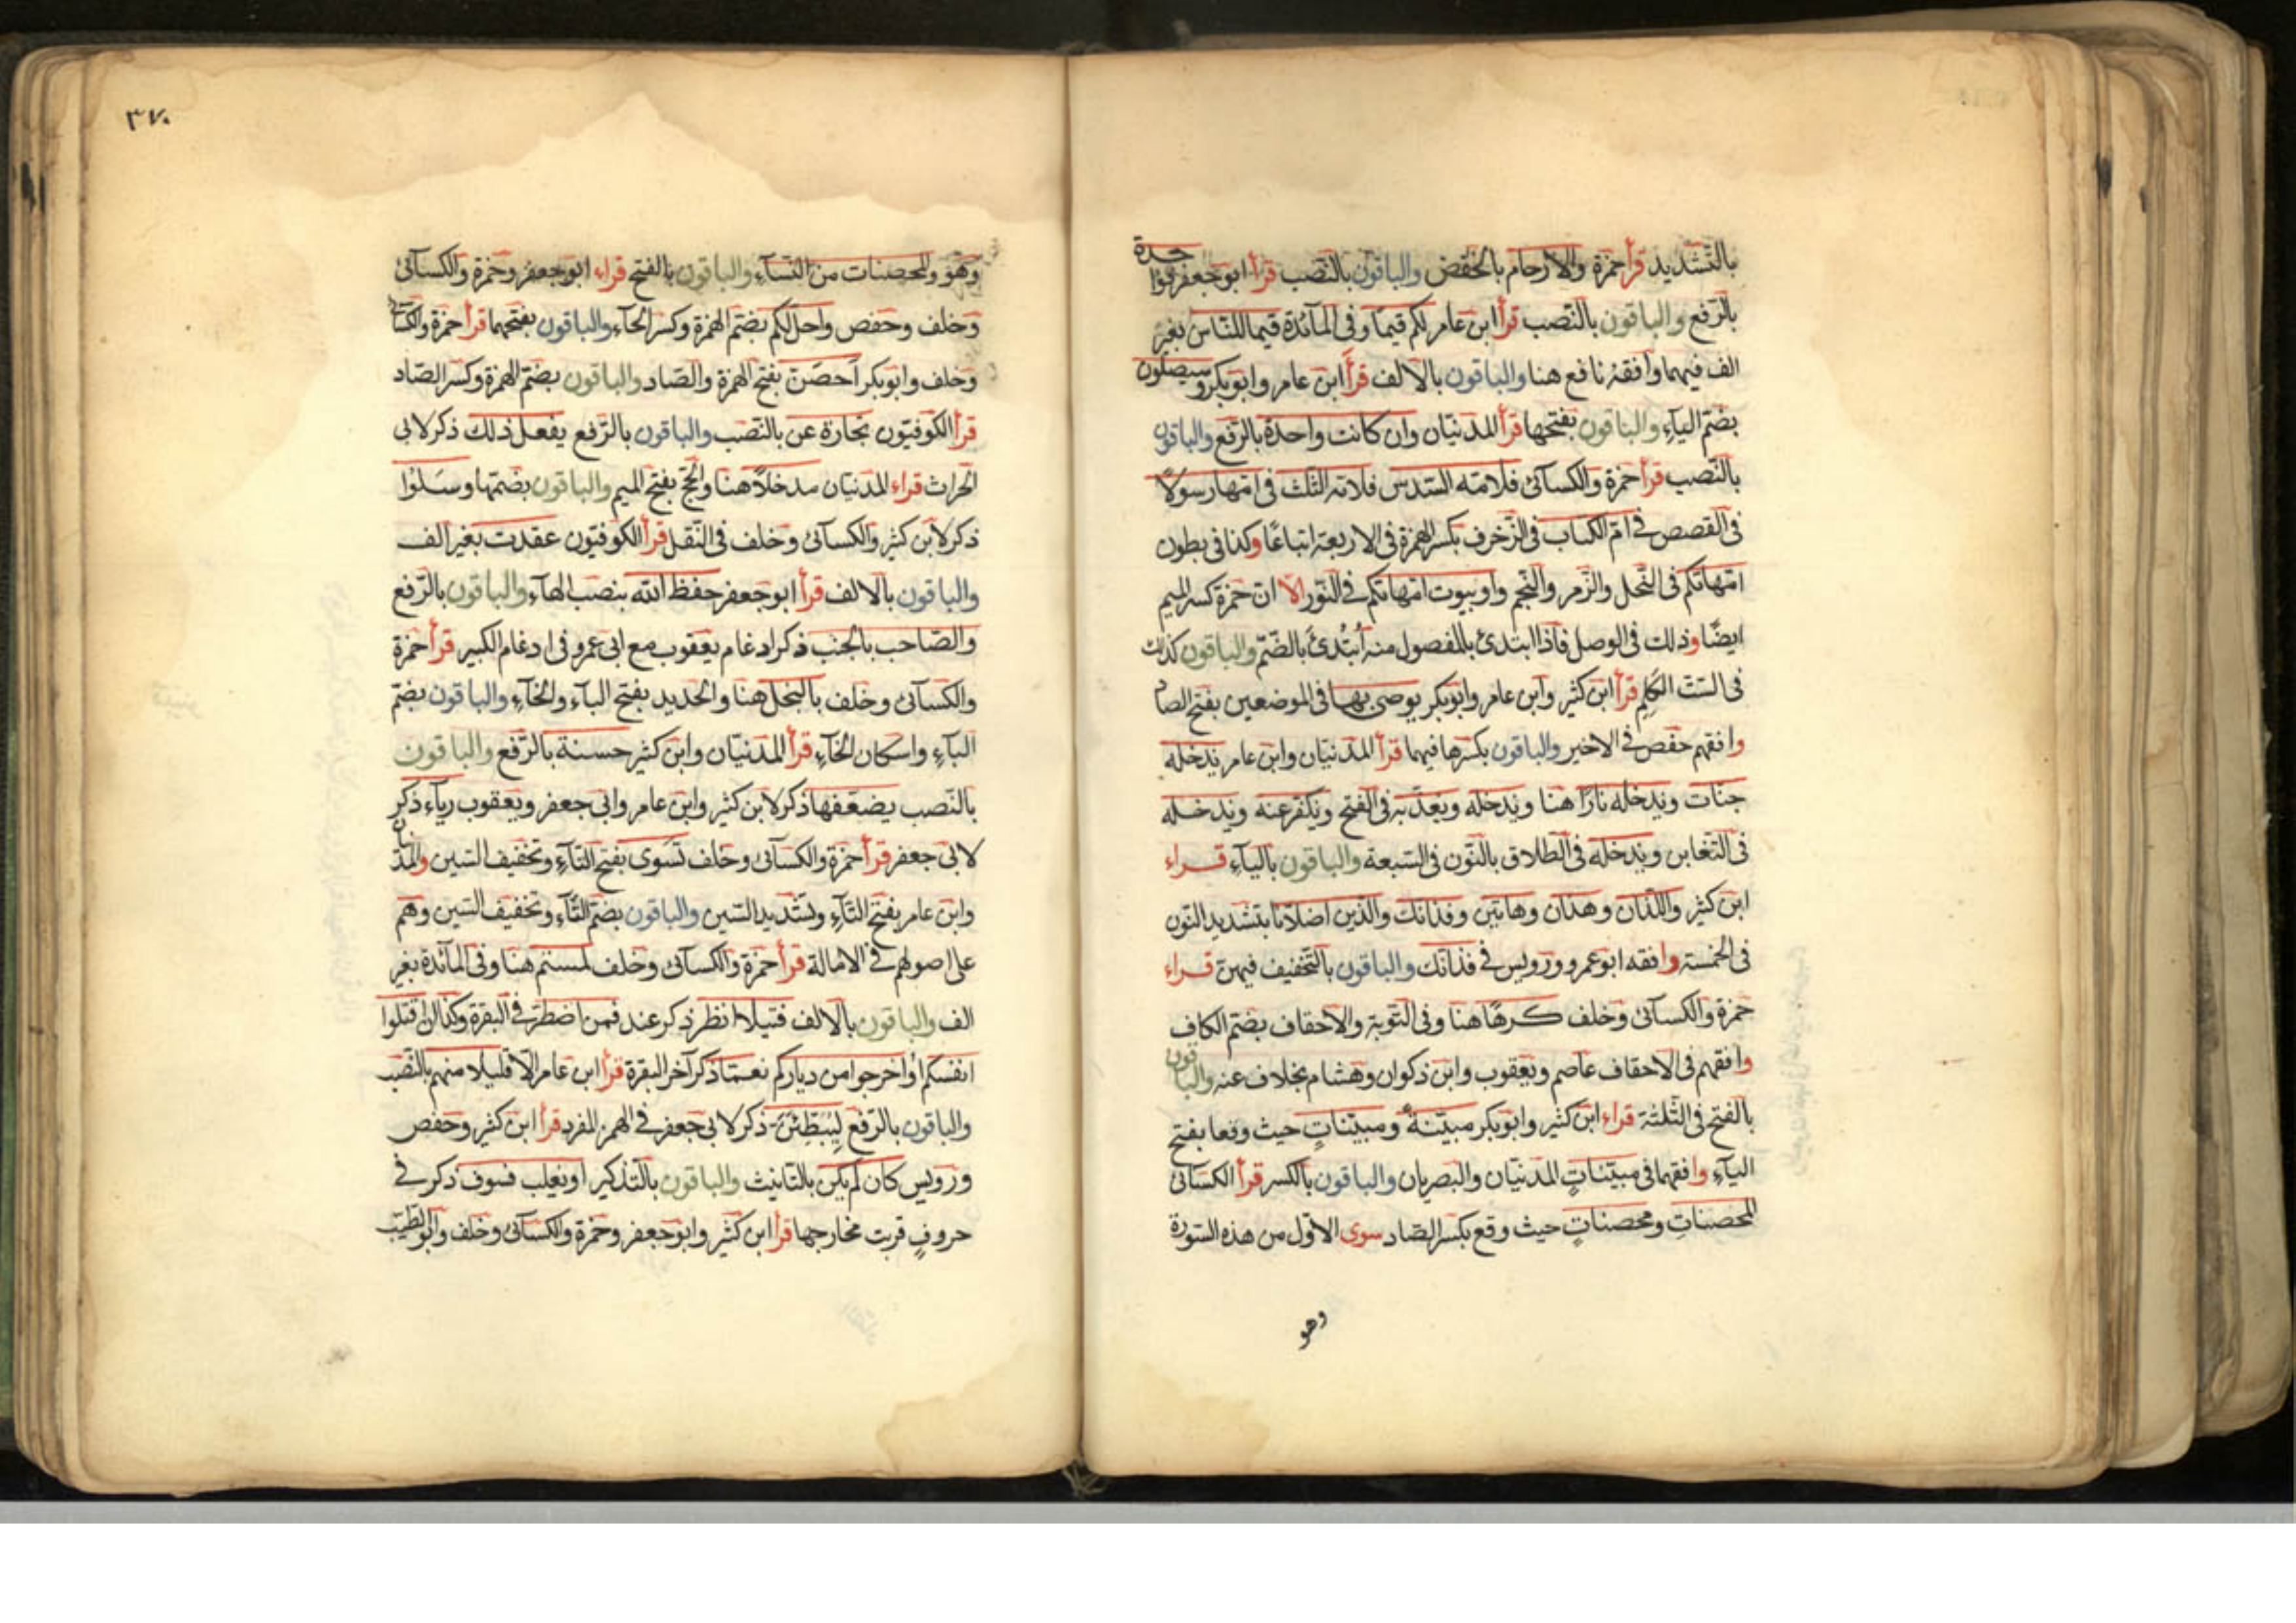 بالتشديد قرأ حمزة والارحام بالخفض والباقون بالنصب قرأ ابو جعفر فواحدة
بالرفع والباقون بالنصب قرأ ابن عامر لكم قيما وفى المآئدة قيما للناس بغير
الف فيهما وافقه نافع هنا والباقون بالالف قرأ ابن عامر وابو بكر وسيصلون
بضم اليآء والباقون بفتحها قرأ المدنيان وان كانت واحدة بالرفع والباقون
بالنصب قرأ حمزة والكسائى فلامه السدس فلامه الثلث فى امها رسولا
فى القصص فى ام الكتاب فى الزخرف بكسر الهمزة فى الاربعة اتباعا وكذا فى بطون
امهاتكم فى النحل والزمر والنجم واو بيوت امهاتكم فى النور الا ان حمزة كسر الميم
ايضا وذلك فى الوصل فاذا ابتدئ بالمفصول منه أبتدئ بالضم والباقون كذلك
فى الست الكلم قرأ ابن كثير وابن عامر وابو بكر يوصى بها فى الموضعين بفتح الصاد
وافقهم حفص فى الاخير والباقون بكسرها فيهما قرأ المدنيان وابن عامر يدخله
جنات ويدخله نارا هنا ويدخله ويعذبه فى الفتح ويكفر عنه ويدخله
فى التغابن ويدخله فى الطلاق بالنون فى السبعة والباقون باليآء قراء
ابن كثير واللذان وهذان وهاتين وفذانك والذين اضلانا بتشديد النون
فى الخمسة وافقه ابو عمرو ورويس فى فذانك والباقون بالتخفيف فيهن قراء
حمزة والكسائى وخلف كرها هنا وفى التوبة والاحقاف بضم الكاف
وافقهم فى الاحقاف عاصم ويعقوب وابن ذكوان وهشام بخلاف عنه والباقون
بالفتح فى الثلثة قراء ابن كثير وابو بكر مبينة ومبينات حيث وقعا بفتح
اليآء وافقهما فى مبينات المدنيان والبصريان والباقون بالكسر قرأ الكسائى
المحصنات ومحصنات حيث وقع بكسر الصاد سوى الاول من هذه السورة
وهو
٣٧٠
وهو والمحصنات من النسآء والباقون بالفتح قراء ابو جعفر وحمزة والكسائى
وخلف وحفص واحل لكم بضم الهمزة وكسر الحآء والباقون بفتحهما قرأ حمزة والكسائى
وخلف وابو بكر أحصن بفتح الهمزة والصاد والباقون بضم الهمزة وكسر الصاد
قرأ الكوفيون تجارة عن بالنصب والباقون بالرفع يفعل ذلك ذكر لابى
الحراث قراء المدنيان مدخلا هنا والحج بفتح الميم والباقون بضمها وسلوا
ذكر لابن كثير والكسائى وخلف فى النقل قرأ الكوفيون عقدت بغير الف
والباقون بالالف قرأ ابو جعفر حفظ الله بنصب الهآء والباقون بالرفع
والصاحب بالجنب ذكر ادغام يعقوب مع ابى عمرو فى ادغام الكبير قرأ حمزة
والكسائى وخلف بالبخل هنا والحديد بفتح البآء والخآء والباقون بضم
البآء واسكان الخآء قرأ المدنيان وابن كثير حسنة بالرفع والباقون
بالنصب يضعفها ذكر لابن كثير وابن عامر وابى جعفر ويعقوب ريآء ذكر
لابى جعفر قرأ حمزة والكسائى وخلف تسوى بفتح التآء وتخفيف السين والمدنيان
وابن عامر بفتح التآء وتشديد السين والباقون بضم التآء وتخفيف السين وهم
على اصولهم فى الامالة قرأ حمزة والكسائى وخلف لمستم هنا وفى المآئدة بغير
الف والباقون بالالف فتيلا انظر ذكر عند فمن اضطر فى البقرة وكذا ان اقتلوا
انفسكم او اخرجوا من دياركم نعما ذكر آخر البقرة قرأ ابن عامر الا قليلا منهم بالنصب
والباقون بالرفع ليبطئن ذكر لابى جعفر فى الهمز المفرد قرأ ابن كثير وحفص
ورويس كان لم يكن بالتانيث والباقون بالتذكير او يغلب فسوف ذكر فى
حروف قربت مخارجها قرأ ابن كثير وابو جعفر وحمزة والكسائى وخلف وابو الطيب